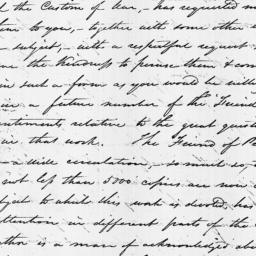 the Custom of War, - has requested m
to you, - together with some other
subject, - with a respectful request
the kindness to peruse them & com
in such a form as you would be willi
in a future number of the Friend
sentiments relative to the great quest
in that work. The Friend of Pe
a wide circulation, - so much so,
not less than 5000 copies are now
subject to which this work is devoted, has
attention in different parts of the
author is a man of acknowledged ab